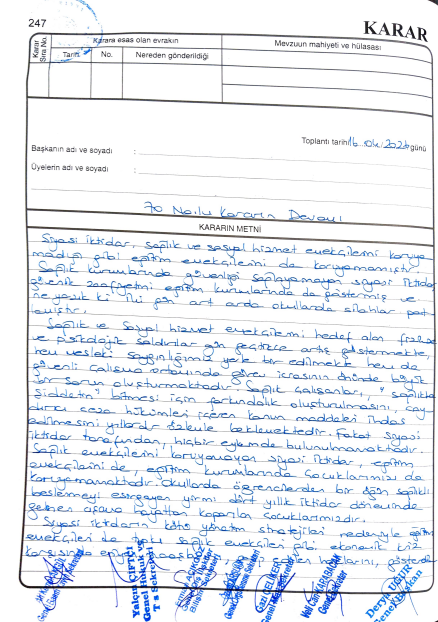 247
KARAR
Karar Sıra No.
Karara esas olan evrakın
Mevzuun mahiyeti ve hülasası
Tarih
No.
Nereden gönderildiği
Toplantı tarihi günü
Başkanın adı ve soyadı :
Üyelerin adı ve soyadı :
70 Nolu Kararın Devamı
KARARIN METNİ
Siyasi iktidar, sağlık ve sosyal hizmet emekçilerini koruya
madığı gibi eğitim emekçilerini de koruyamamıştır.
Sağlık kurumlarında güvenliği sağlayamayan siyasi iktidar
güvenlik zaafiyetini eğitim kurumlarında da göstermiş ve
ne yazık ki iki gün art arda okullarda silahlar pat
lamıştır.
Sağlık ve Sosyal hizmet emekçilerini hedef alan
ve psikolojik saldırılar gün geçtikçe artış göstermekte,
hem mesleki saygınlığımız yok edilmekte hem de
güvenli çalışma ortamında görev icrasının önünde büyük
bir sorun oluşturmaktadır. Sağlık çalışanları, "sağlıkta
şiddetin" bitmesi için farkındalık oluşturulmasını, cay
dırıcı ceza hükümleri içeren kanun maddeleri ihdas
edilmesini yıllardır beklemektedir. Fakat siyasi
iktidar tarafından, hiçbir eylemde bulunulmamaktadır.
Sağlık emekçilerini koruyamayan siyasi iktidar, eğitim
emekçilerini de, eğitim kurumlarında çocuklarımızı da
koruyamamaktadır. Okullarda öğrencilerden bir öğün sağlıklı
beslenmeyi esirgeyen yirmi dört yıllık iktidar döneminde
gelinen aşama hayattan koparılan çocuklarımızdır.
Siyasi iktidarın kötü yönetim stratejileri nedeniyle eğitim
emekçileri de tıpkı sağlık emekçileri gibi ekonomik kriz
karşısında
Yalçın ÇİFTÇİ
Genel Hukuk ve
Tis Sekreteri
AÇIKGÖZ
Gazi ÇELİKER
Derya UĞUR
Genel Başkan